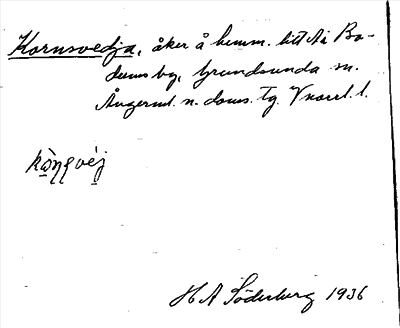 Kornsvedja, åker å hemm. litt Aa Bo-
dums by, Grundsunda sn.
Ångerml. n. doms. Tg. Vnorrl. l.
H A Söderberg 1936